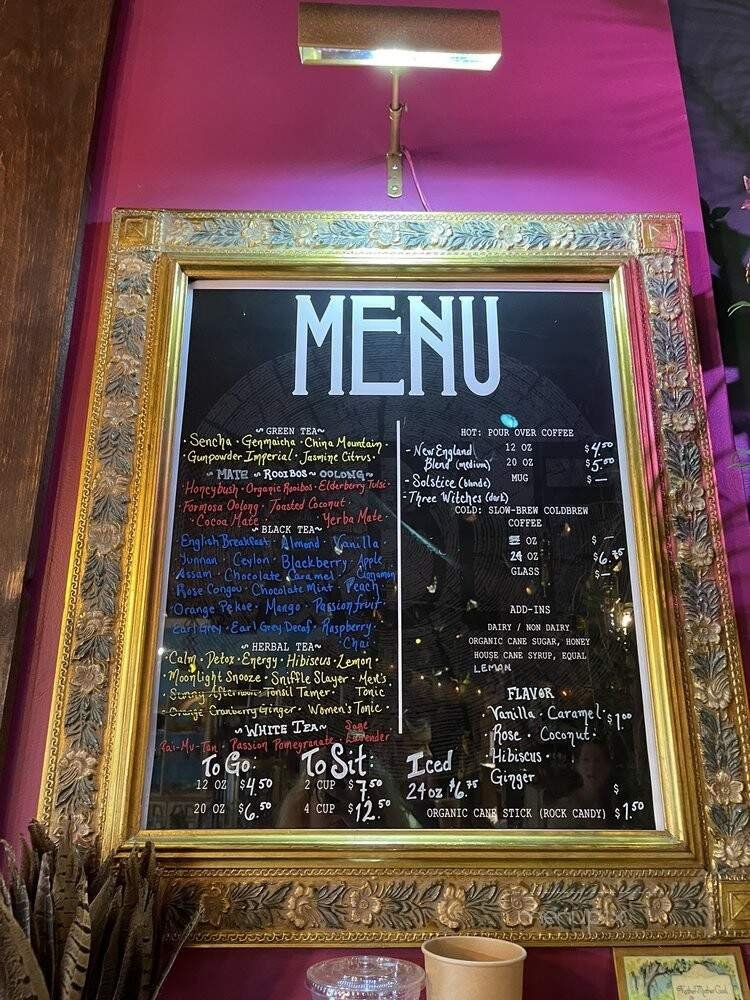 MENU
~GREEN TEA~
· Sencha · Genmaicha · China Mountain ·
· Gunpowder Imperial · Jasmine Citrus ·
~ MATE ~ ROOIBOS ~ OOLONG ~
· Honeybush · Organic Rooibos · Elderberry Tulsi ·
· Formosa Oolong · Toasted Coconut ·
· Cocoa Mate · Yerba Mate
~BLACK TEA~
English Breakfast · Almond · Vanilla ·
Yunnan · Ceylon · Blackberry · Apple
Assam · Chocolate Caramel · Cinnamon
Rose Congou · Chocolate Mint · Peach
Orange Pekoe · Mango · Passionfruit ·
Earl Grey · Earl Grey Decaf · Raspberry ·
· Chai ·
~HERBAL TEA~
· Calm · Detox · Energy · Hibiscus · Lemon ·
· Moonlight Snooze · Sniffle Slayer · Men's
· Sunny Afternoon · Tonsil Tamer · Tonic
· Orange Cranberry Ginger · Women's Tonic ·
~ WHITE TEA ~ Sage
Pai-Mu-Tan · Passion Pomegranate · Lavender
To Go:
12 OZ $4.50
20 OZ $6.50
To Sit:
2 CUP $7.50
4 CUP $12.50
Iced
24 oz $6.75
HOT: POUR OVER COFFEE
- New England
Blend (medium)
- Solstice (blonde)
- Three Witches (dark)
12 OZ $4.50
20 OZ $5.00
MUG $ —
COLD: SLOW-BREW COLDBREW
COFFEE
OZ $ —
24 OZ $6.75
GLASS $ —
ADD-INS
DAIRY / NON DAIRY
ORGANIC CANE SUGAR, HONEY
HOUSE CANE SYRUP, EQUAL
LEMON
FLAVOR
· Vanilla · Caramel · $1.00
· Rose · Coconut ·
· Hibiscus ·
Ginger
$
ORGANIC CANE STICK (ROCK CANDY) $1.50